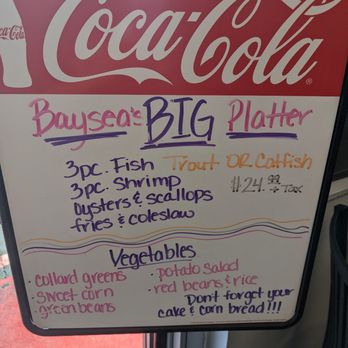 Coca-Cola
Coca-Cola®
Baysea's BIG Platter
3pc. Fish Trout OR Catfish
3pc. Shrimp $24.99 + Tax
oysters & scallops
fries & coleslaw
Vegetables
· collard greens · potato salad
· sweet corn · red beans & rice
· green beans Don't forget your
cake & corn bread!!!